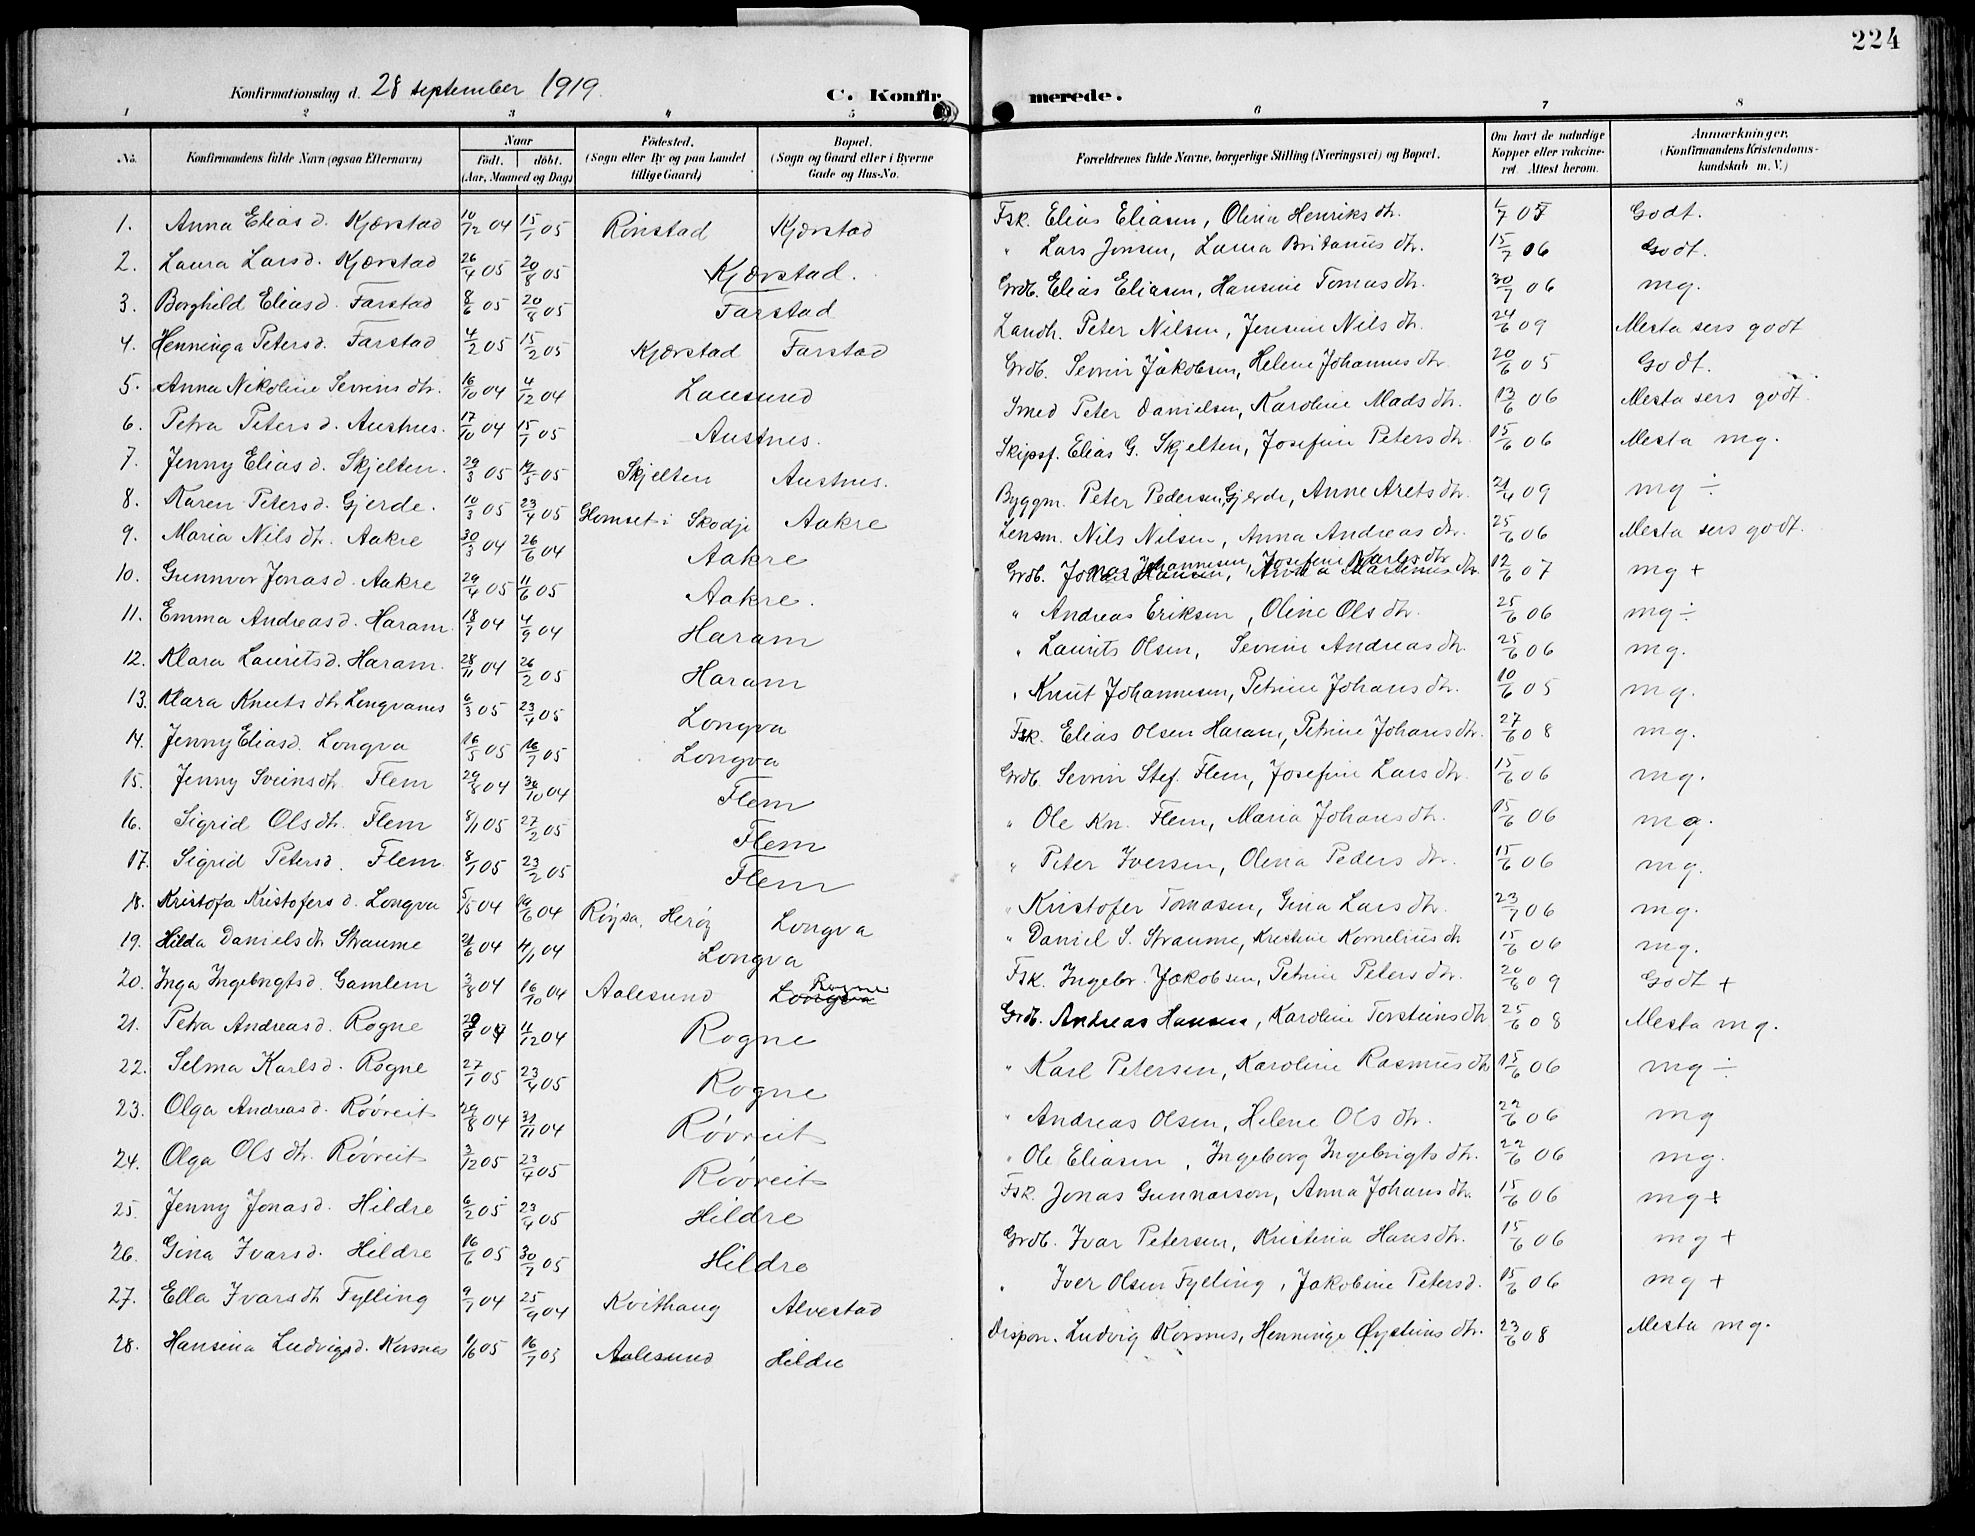 224
Konfirmationsdag d. 28 september 1919. C. Konfirmerede.
1 2 3 4 5 6 7 8
No. Konfirmandens fulde Navn (ogsaa Efternavn) Naar født. døbt. (Aar, Maaned og Dag) Fødested. (Sogn eller By og paa Landet tillige Gaard) Bopæl. (Sogn og Gaard eller i Byerne Gade og Hus-No. Forældrenes fulde Navne, borgerlige Stilling (Næringsvei) og Bopæl. Om havt de naturlige Kopper eller vakcineret. Attest herom. Anmærkninger. (Konfirmandens Kristendomskundskab m. V.)
1. Anna Elias d. Kjærstad 10/12 04 15/1 05 Rönstad Kjærstad Fsk. Elias Eliasen, Olina Henriks dtr. 1/7 05 Godt.
2. Laura Lars d. Kjærstad 26/4 05 20/8 05 Kjærstad. " Lars Jonsen, Laura Britanus dtr. 15/7 06 Godt.
3. Borghild Elias d. Farstad 8/6 05 20/8 05 Farstad Grdb. Elias Eliasen, Hansine Tomas dtr. 30/7 06 mg.
4. Henninga Peters d. Farstad 4/2 05 15/2 05 Kjærstad Farstad Landh. Peter Nilsen, Jensine Nils dtr. 24/6 09 Mesta sers godt
5. Anna Nikoline Sevrins dtr. 16/10 04 4/12 04 Lausund Grdb. Sevrin Jakobsen, Helene Johannes dtr. 20/6 05 Godt.
6. Petra Peters d. Austnes. 17/10 04 15/1 05 Austnes. Smed Peter Danielsen, Karoline Mads dtr. 13/6 06 Mesta sers godt.
7. Jenny Elias d. Skjelten. 29/3 05 05 Skjelten Austnes. Skipsf. Elias G. Skjelten, Josefine Peters dtr. 15/6 06 Mesta mg.
8. Karen Peters d. Gjerde. 10/3 05 23/4 05 Glomset i Skodje Aakre Byggm. Peter Pedersen Gjerde, Anne Arets dtr. 21/4 09 mg ÷
9. Maria Nils dtr. Aakre 30/3 04 26/6 04 Aakre Lensm. Nils Nilsen, Anna Andreas dtr. 25/6 06 Mesta sers godt.
10. Gunnvor Jonas d. Aakre 29/4 05 11/6 05 Aakre. Grdb. Jonas Johannesen, Josefine Karls dtr. 12/6 07 mg +
11. Emma Andreas d. Haram. 18/7 04 4/9 04 Haram " Andreas Eriksen, Oline Ols dtr. 25/6 06 mg ÷
12. Klara Laurits d. Haram. 28/11 04 26/2 05 Haram " Laurits Olsen, Sevrine Andreas dtr. 25/6 06 mg.
13. Klara Knuts dtr. Longvanes 6/3 05 23/4 05 Longva " Knut Johannesen, Petrine Johans dtr. 10/6 05 mg.
14. Jenny Elias d. Longva 16/5 05 16/7 05 Longva Fsk. Elias Olsen Haram, Petrine Johans dtr. 27/6 08 mg.
15. Jenny Sveins dtr. Flem 29/8 04 30/10 04 Flem Grdb. Sevrin Stef. Flem, Josefine Lars dtr. 15/6 06 mg.
16. Sigrid Ols dtr. Flem 8/1 05 27/2 05 Flem " Ole Kn. Flem, Maria Johans dtr. 15/6 06 mg.
17. Sigrid Peters d. Flem. 8/1 05 23/2 05 Flem " Peter Iversen, Olena Peders dtr. 15/6 06 mg.
18. Kristofa Kristofers d. Longva 5/15 04 19/6 04 Röysa, Heröy Longva " Kristofer Tomasen, Gina Lars dtr. 23/7 06 mg.
19. Hilda Daniels dtr Straume 21/6 04 04 Longva " Daniel S. Straume, Kristine Kornelius dtr 15/6 06 mg.
20. Inga Ingebrigts d. Gamlem 3/8 04 16/10 04 Aalesund Longva Rogne Fsk. Ingebr. Jakobsen, Petrine Peters dtr. 20/6 09 Godt +
21. Petra Andreas d. Rogne 04 11/12 04 Rogne Grdb. Andreas Hansen, Karoline Torsteins dtr 25/6 08 Mesta mg.
22. Selma Karls d. Rogne 27/1 05 23/4 05 Rogne " Karl Petersen, Karoline Rasmus dtr 15/6 06 mg ÷
23. Olga Andreas d. Rövreit 29/8 04 04 Rövreit " Andreas Olsen, Helene Ols dtr. 22/6 06 mg
24. Olga Ols dtr. Rövreit 3/12 05 23/4 05 Rövreit " Ole Eliasen, Ingeborg Ingebrigts dtr. 22/6 06 mg.
25. Jenny Jonas d. Hildre 6/2 05 23/4 05 Hildre Fsk. Jonas Gunnarson, Anna Johans dtr. 15/6 06 mg +
26. Gina Ivars d. Hildre 16/6 05 30/7 05 Hildre Grdb. Ivar Petersen, Kristina Hans dtr. 15/6 06 mg +
27. Ella Ivars dtr Fylling 9/7 04 25/9 04 Kvithaug Alvestad " Iver Olsen Fylling, Jakobine Peters d. 15/6 06 mg +
28. Hansina Ludvigs d. Korsnes 1/6 05 16/7 05 Aalesund Hildre Dispon. Ludvig Korsnes, Henninge Øysteins dtr. 23/6 08 Mesta mg.